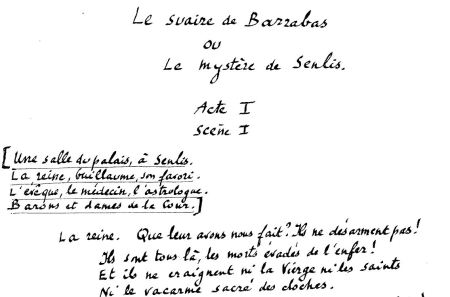 Le suaire de Barrabas
ou
Le mystère de Senlis.
Acte I
Scène I
[Une salle du palais, à Senlis.
La reine, Guillaume, son favori.
L'évêque, le médecin, l'astrologue.
Barons et dames de la Cour.]
La reine. Que leur avons nous fait? Ils ne désarment pas!
Ils sont tous là, les morts évadés de l'enfer!
Et ils ne craignent ni la Vierge ni les saints
Ni le vacarme sacré des cloches.